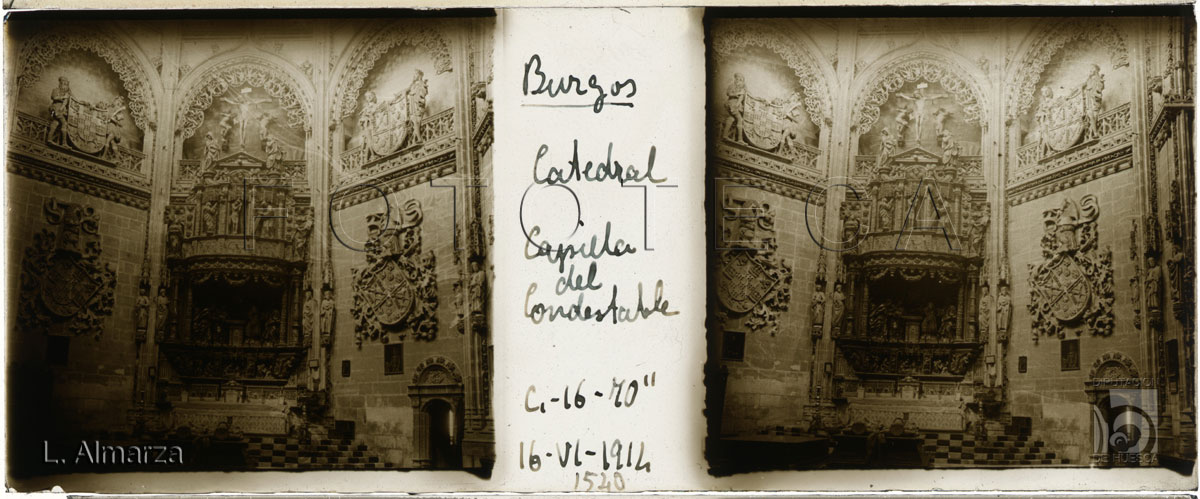 Burgos
Catedral
Capilla
del
Condestable
C.-16-70"
16-VI-1914
1540
FOTOTECA
L. Almarza
DIPUTACIÓN
DE HUESCA